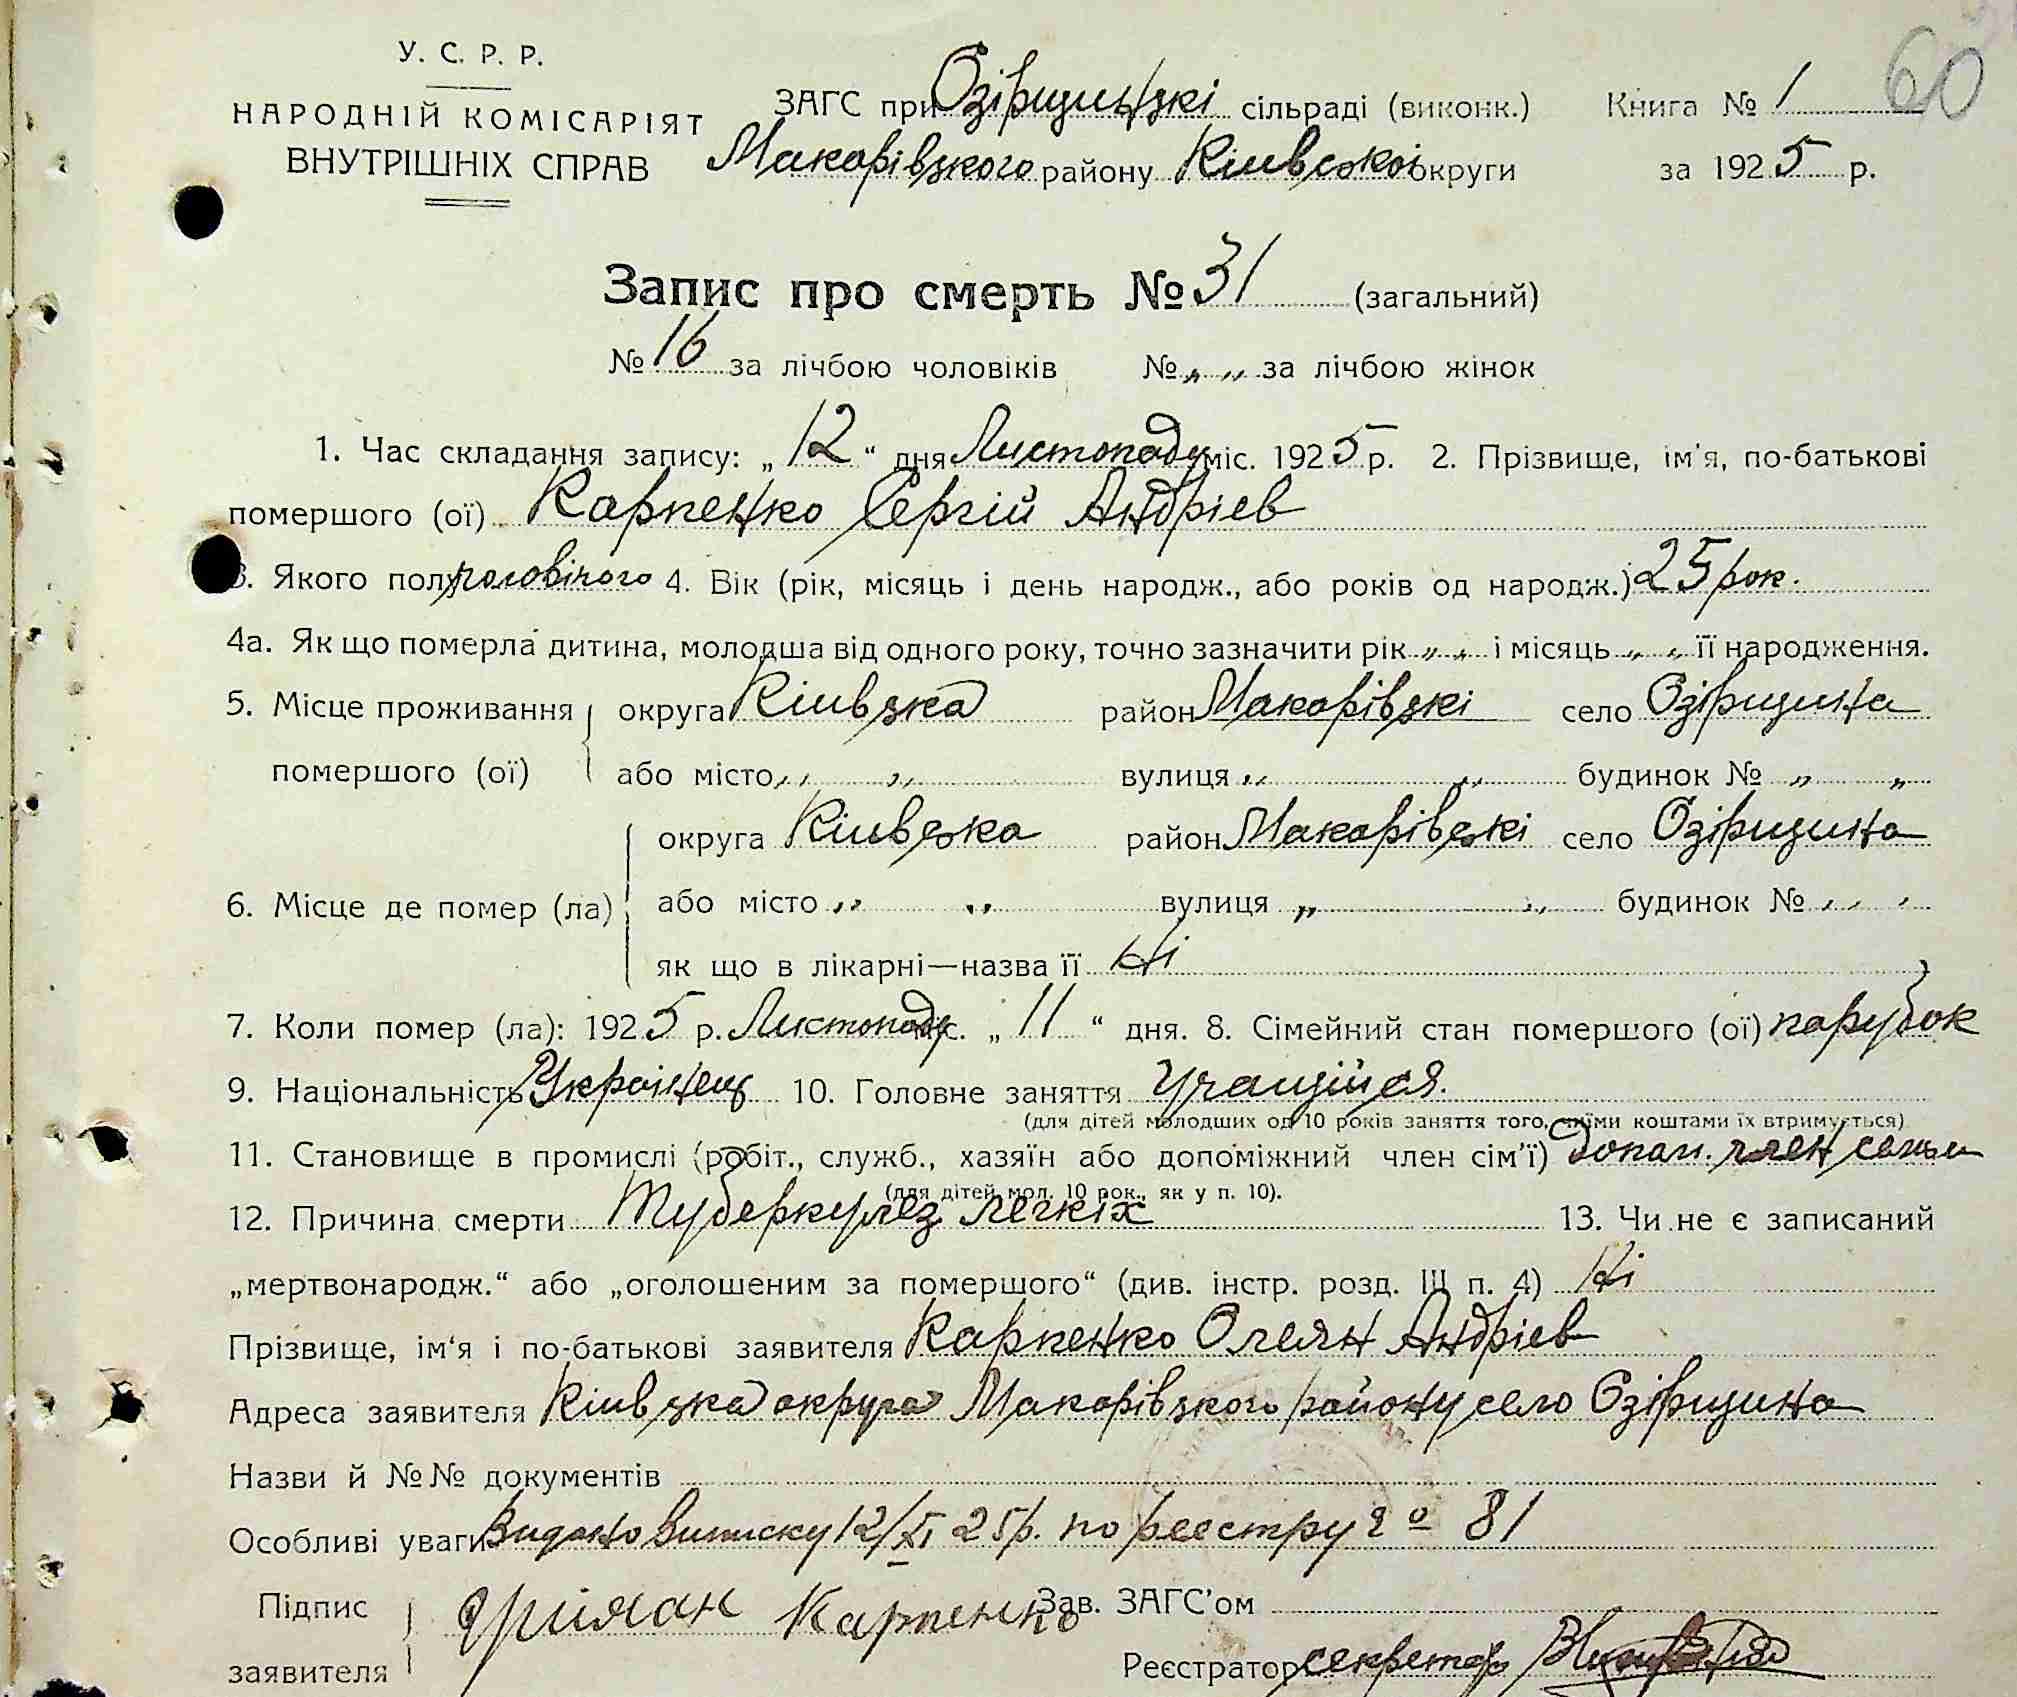 60
У. С. Р. Р.
НАРОДНІЙ КОМІСАРІЯТ
ВНУТРІШНІХ СПРАВ
ЗАГС при Озірщинскі сільраді (виконк.) Книга № 1
Макарівского району Киівскоі округи за 1925 р.
Запис про смерть № 31 (загальний)
№ 16 за лічбою чоловіків № „ „ за лічбою жінок
1. Час складання запису: „ 12 “ дня Листопаду міс. 1925 р. 2. Прізвище, ім'я, по-батькові
помершого (ої) Карпенко Сергій Андріев
3. Якого полу чоловічого 4. Вік (рік, місяць і день народж., або років од народж.) 25 рок.
4а. Як що померла дитина, молодша від одного року, точно зазначити рік „ „ і місяць „ „ її народження.
5. Місце проживання округа Киівска район Макарівскі село Озірщина
помершого (ої) або місто „ „ вулиця „ „ будинок № „ „
округа Киівска район Макарівскі село Озірщина
6. Місце де помер (ла) або місто „ „ вулиця „ „ будинок № „ „
як що в лікарні—назва її Ні
7. Коли помер (ла): 1925 р. Листопаду міс. „ 11 “ дня. 8. Сімейний стан помершого (ої) парубок
9. Національність Украінец 10. Головне заняття Учащійся.
(для дітей молодших од 10 років заняття того, чиїми коштами їх втримується)
11. Становище в промислі (робіт., служб., хазяїн або допоміжний член сім'ї) Допом. член семьи
(для дітей мол. 10 рок., як у п. 10).
12. Причина смерти Туберкулез легкіх 13. Чи не є записаний
„мертвонародж.“ або „оголошеним за помершого“ (див. інстр. розд. III п. 4) Ні
Прізвище, ім'я і по-батькові заявителя Карпенко Олеян Андріев
Адреса заявителя Киівска округа Макарівского району село Озірщина
Назви й №№ документів
Особливі уваги Видано Виписку 12/XI 25р. по реестру № 81
Підпис Карпенко Зав. ЗАГС'ом
заявителя Реєстратор секретар